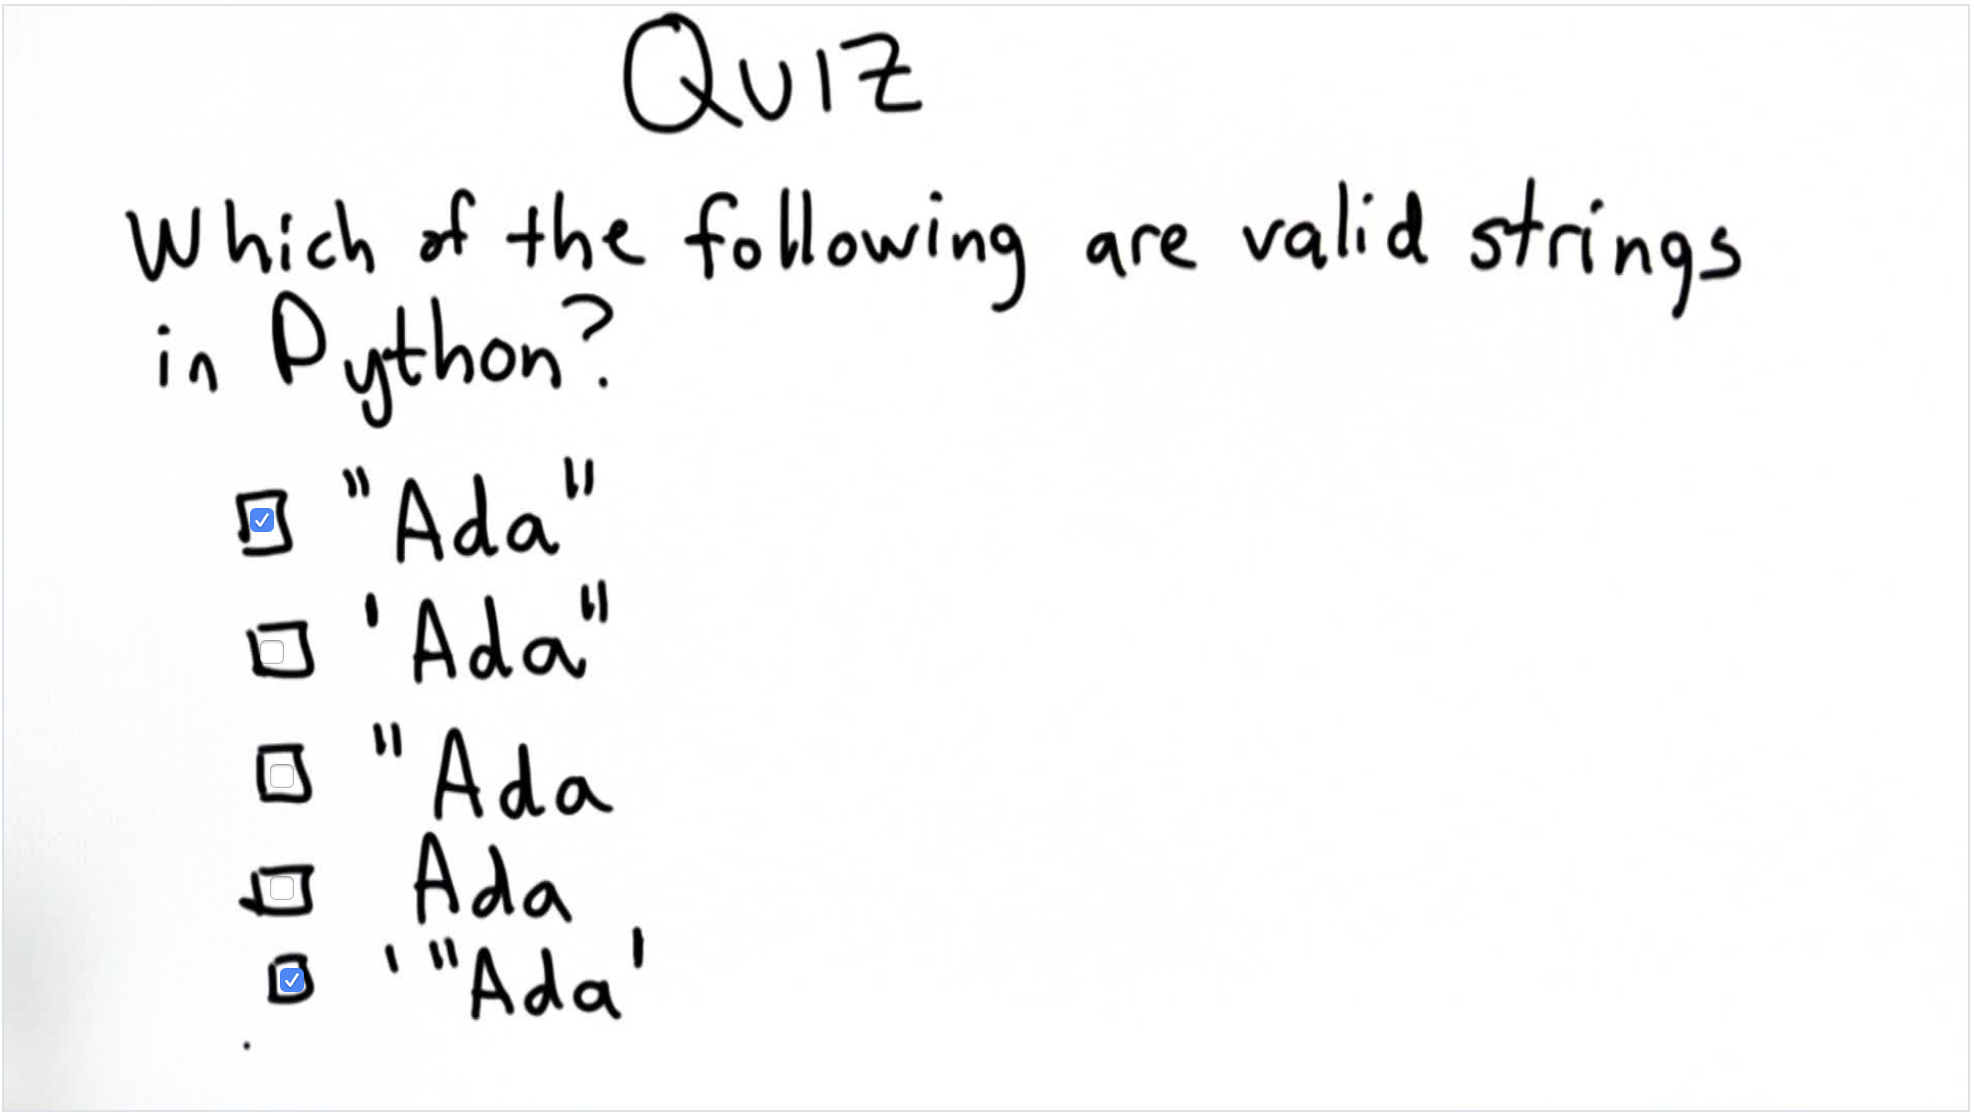 QUIZ
Which of the following are valid strings
in Python?
"Ada"
'Ada"
"Ada
Ada
'"Ada'